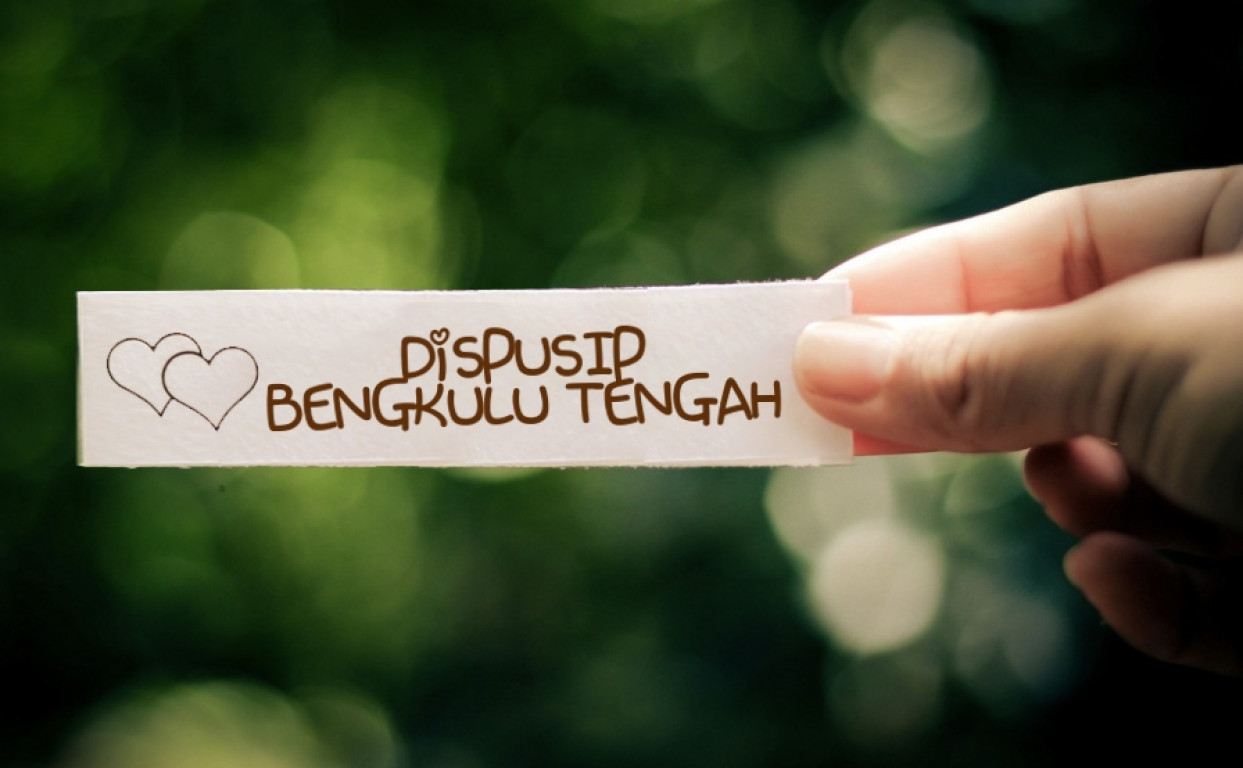 DiSPUSIP
BENGKULU TENGAH